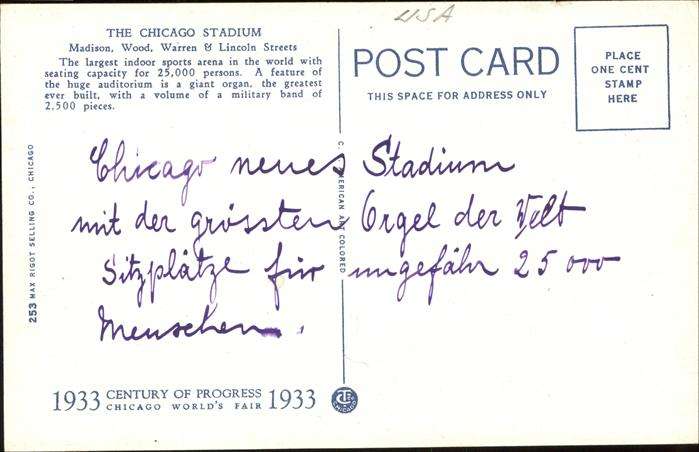 USA
THE CHICAGO STADIUM
Madison, Wood, Warren & Lincoln Streets
The largest indoor sports arena in the world with
seating capacity for 25,000 persons. A feature of
the huge auditorium is a giant organ, the greatest
ever built, with a volume of a military band of
2,500 pieces.
POST CARD
THIS SPACE FOR ADDRESS ONLY
PLACE
ONE CENT
STAMP
HERE
Chicago neues Stadium
mit der grössten Orgel der Welt
Sitzplätze für ungefähr 25000
Menschen.
253 MAX RIGOT SELLING CO., CHICAGO
C. AMERICAN ART COLORED
1933 CENTURY OF PROGRESS 1933
CHICAGO WORLD'S FAIR